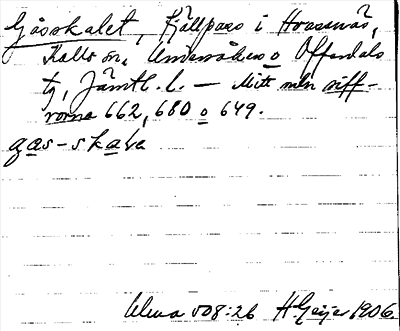 Gåsskalet, Fjällpass i Hosssnås,
Kalls sn, Undersåkers o Offerdals
tg, Jämtl. l. — Mitt mln siff-
rorna 662, 680 o 649.
gas-skala
Ulma 508:26 H Geijer 1906.